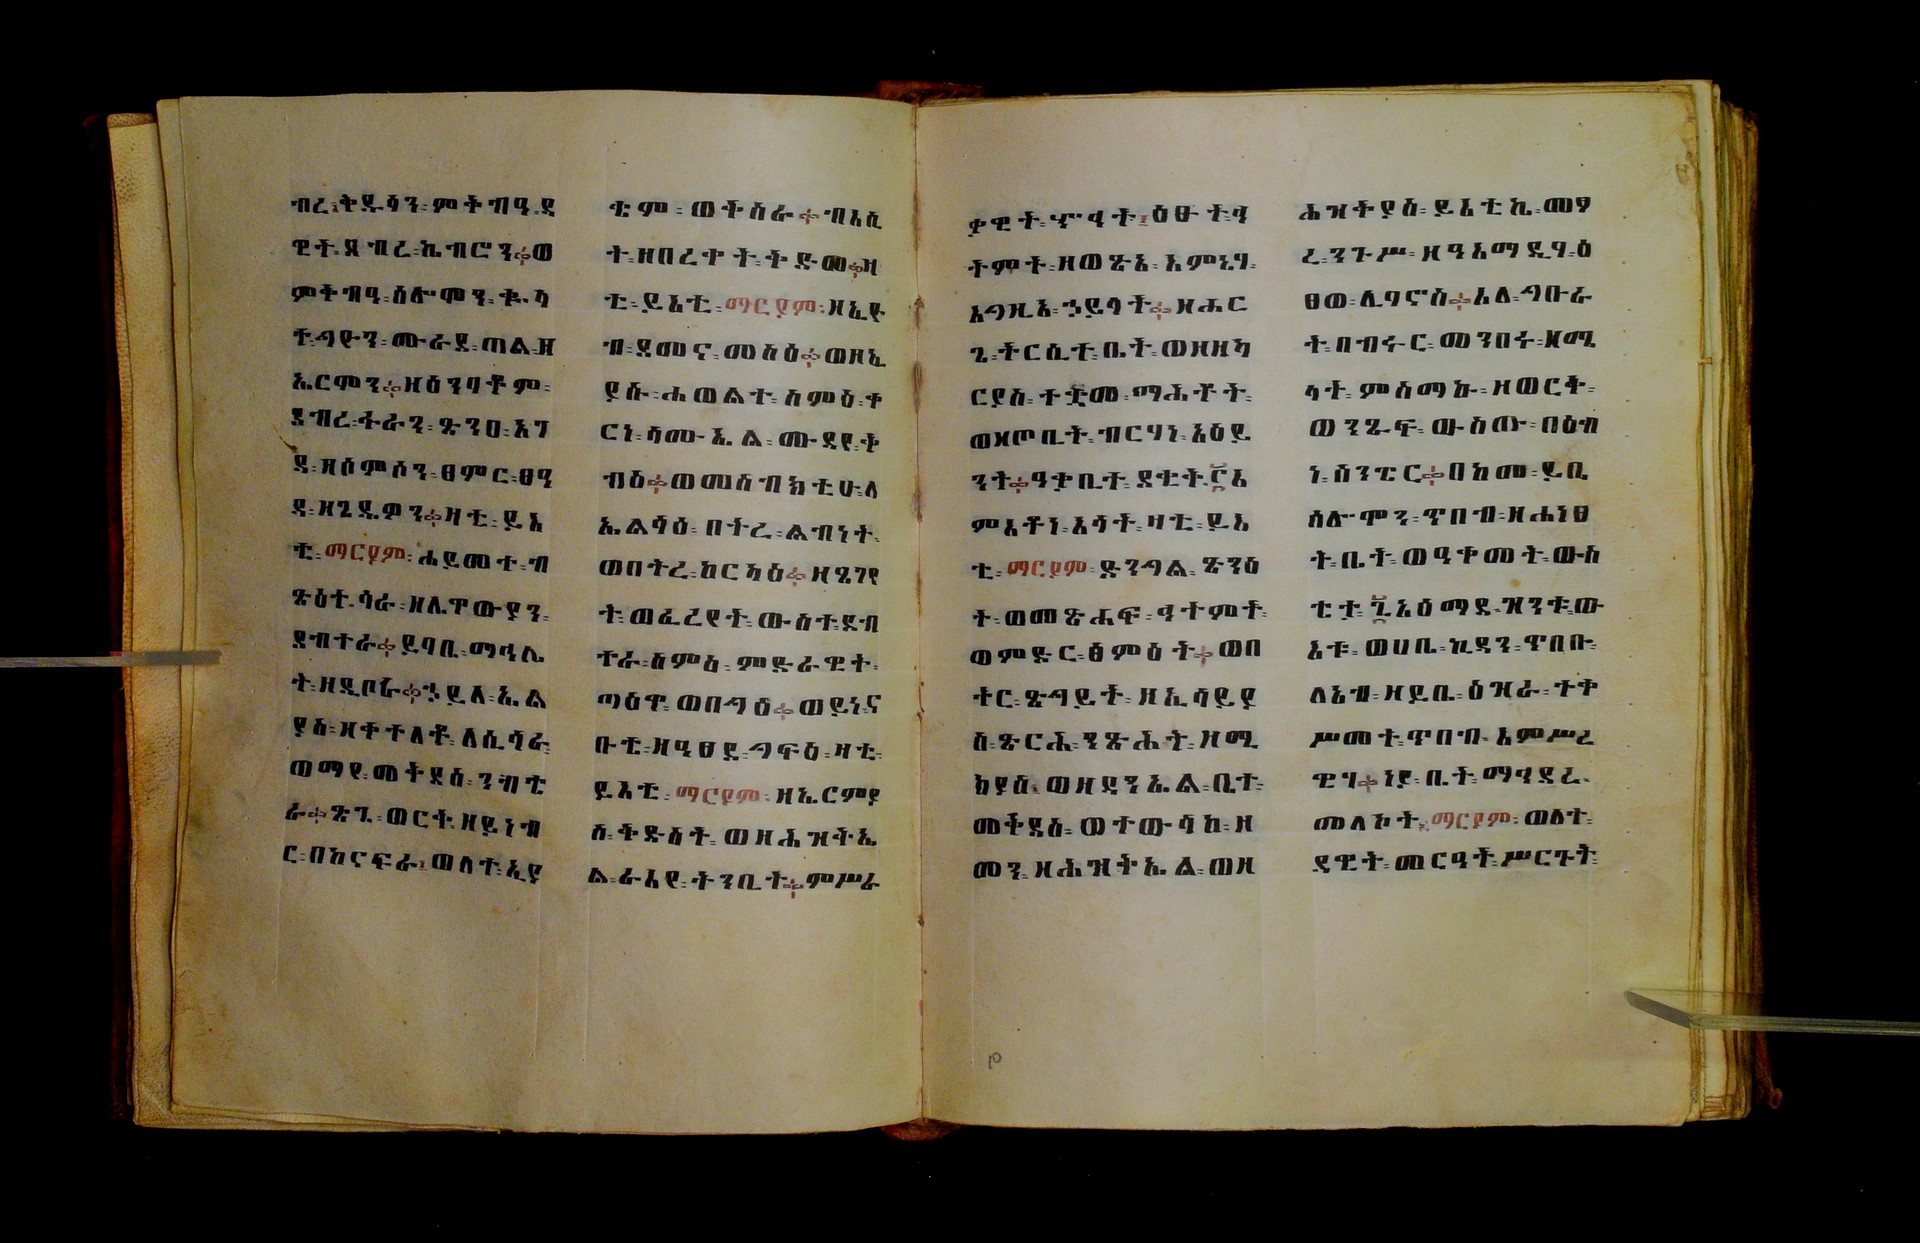 ብረ፡ትዱሳን፡ምትብዓ፡ዳ
ዊት፡ደብረ፡ኪብሮን፨ወ
ምትዝዓ፡ሰሎሞን፡ቁላ
ት፡ዓይን፡ሙራደ፡ጠልዘ
ኤርሞን፨ዘዕንባቆም፡
ደብረ፡ፋራን፡ጽንዐ፡
ዳ፡ዘሰምሶን፡ፀምር፡ፀዓ
ዳ፡ዘጌዴዎን፨ዛቲ፡ይእ
ቲ፡ማርያም፡ሐይመተ፡ብ
ጽዕት፡ሳራ፡ዘሊጦውያን፡
ደብተራ፨ይባቤ፡ማኅሌ
ት፡ዘዲቦራ፨ኃይለ፡ኢል
ያስ፡ዘቀተለቶ፡ለሲሳራ፡
ወማየ፡መቅደስ፡
ራ፨ጽጌ፡ወርት፡ዘይነብ
ር፡በከናፍራ፡ወለተ፡ኢያ
ቄም፡ወትስራ፨ብእሲ
ት፡ዘበረቀት፡ትድመ፨ዛ
ቲ፡ይእቲ፡ማርያም፡ዘኢይ
ዘ፡ደመና፡መስዕ፨ወዘኢ
ያሱ፡ሐወልተ፡ስምዕ፡ቀ
ርነ፡ሳሙኤል፡ሙዳየ፡ቅ
ብዕ፨ወመስብክቲሁ፡ለ
ኤልሳዕ፡በትረ፡ልብነት፡
ወበትረ፡ከርካዕ፨ዘዔገየ
ት፡ወፈረየት፡ውስተ፡ደብ
ተራ፡ስምዕ፡ምድራዊት፡
ጣዕዋ፡ወበግዕ፨ወይነ፡ና
ቡቴ፡ዘዒፀይ፡ጋፍዕ፡ዛቲ፡
ይእቲ፡ማርያም፡ዘኤርምያ
ስ፡ትድስት፡ወዘሕዝቅኤ
ል፡ራእየ፡ትንቢት፨ምሥራ
ቃዊት፡ኆኅት፡ዕፁት፡ኅ
ትምት፡ዘወጽአ፡እምኔሃ፡
እግዚአ፡ኃይላት፨ዘሐር
ጌ፡ትርሲተ፡ቤት፡ወዘዘካ
ርያስ፡ተቋመ፡ማሕቶት፡
ወዘጦቢት፡ብርሃነ፡አዕይ
ንት፨ዓቃቢተ፡ደቂቅ፡፯እ
ምእቶነ፡እሳት፡ዛቲ፡ይእ
ቲ፡ማርያም፡ድንግል፡ጽንዕ
ት፡ወመጽሐፍ፡ኅተምት፡
ወምድር፡ፅምዕት፨ወበ
ትር፡ጽግይት፡ዘኢሳይያ
ስ፡ጽርሕ፡ንጽሕት፡ዘሚ
ክያስ፡ወዘዳንኤል፡ቤተ፡
መቅደስ፡ወተውሳከ፡ዘ
መን፡ዘሕዝቅኤል፡ወዘ
ሕዝቅያስ፡ይእቲ፡ኪ፡መፃ
ረ፡ንጉሥ፡ዘዓአማዲሃ፡ዕ
ፀወ፡ሊባኖስ፨እለ፡ግቡራ
ት፡በብሩር፡መንበሩ፡ዘሚ
ላት፡ምስማኩ፡ዘወርቅ፡
ወንጼፍ፡ውስጡ፡በዕብ
ነ፡ሰንፔር፨በከመ፡ይቤ
ሰሎሞን፡ጥበብ፡ዘሐነፀ
ት፡ቤተ፡ወዓቀመት፡ውስ
ቴታ፡፯አዕማደ፡ዝንቱ፡ው
እቱ፡ወሀቤ፡ኪዳን፡ጥበቡ፡
ለእዝ፡ዘይቤ፡ዕዝራ፡ተቀ
ሥመተ፡ጥበብ፡እምሥረ
ዊሃ፨ነያ፡ቤተ፡ማኅደረ፡
መለኮት፡ማርያም፡ወለተ፡
ዳዊት፡መርዓት፡ሥርጉት፡